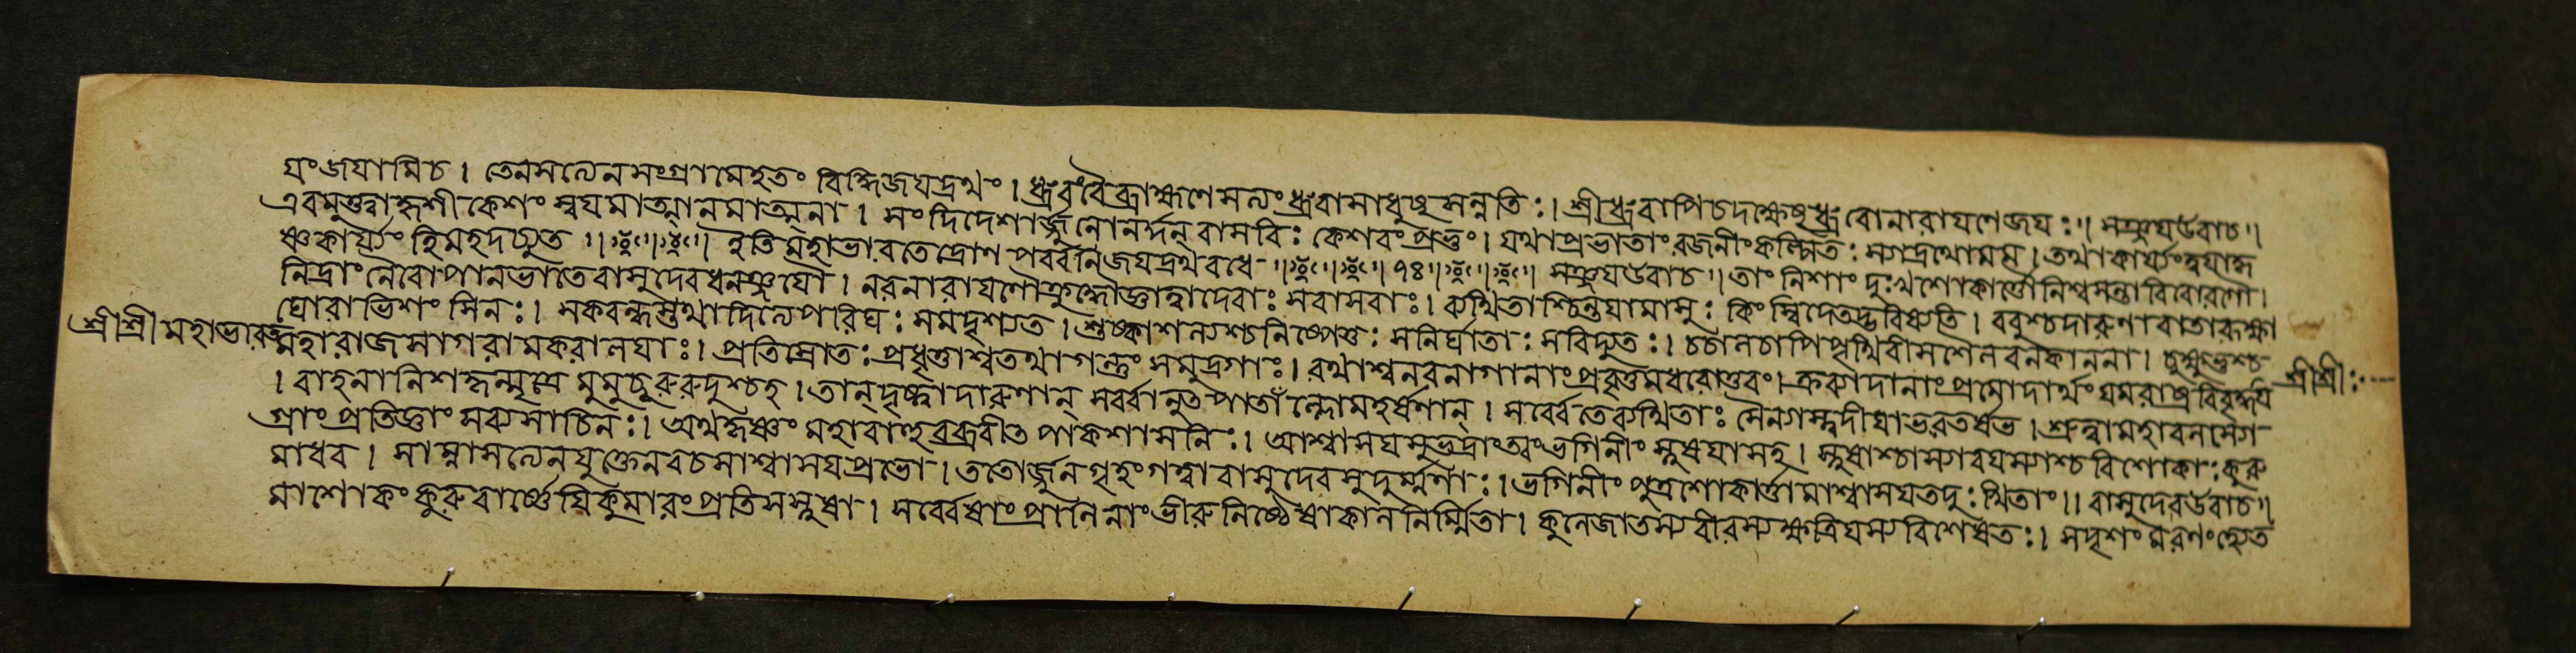 যংঙযামিচ। তেনসত্যেনসংগ্রামেহতং বিদ্ধিজযদ্রথং। ধ্রুবংবৈব্রাহ্মণেসত্যংধ্রুবাসাধুষুসন্নতি:। শ্রীর্ধ্রুবাপিচদক্ষেষুধ্রুবোনারাযণেজয:॥ সঞ্জযউবাচ॥
এবমুক্ত্বাহৃশীকেশং স্বযমাত্মানমাত্মনা। সংদিদেশার্জ্জুনোনর্দ্দন্ বাসবি: কেশবংপ্রভুং। যথাপ্রভাতাংরজনীংকল্পিত: স্যাদ্রথোমম। তথাকার্য্যংত্বযাহৃ
ঞ্চকার্য্যং হিমহদচ্যুত॥ ইতিমহাভারতেদ্রোণ পর্ব্বনিজযদ্রথবধে॥ ৭৪॥ সঞ্জযউবাচ॥ তাং নিশাং দু:খশোকার্ত্তৌনিশ্বসন্তাবিবোরগৌ।
নিদ্রাংনৈবোপানভাতেবাসুদেবধনঞ্জযৌ। নরনারাযণৌক্রুদ্ধৌজ্ঞাত্বাদেবাঃ সবাসবাঃ। ব্যথিতাশ্চিন্তযামাসু: কিংস্বিদেতদ্ভবিষ্যতি। ববুশ্চদারুণাবাতারূক্ষা
ঘোরাভিশংসিন:। সকবন্ধস্তথাদিত্যেপরিঘ: সমদৃশ্যত। শুষ্কাশন্যশ্চনিষ্পেতু: সনির্ঘাতা: সবিদ্যুত:। চচালচাপিপৃথিবীসশৈলবনকাননা। চুক্ষুভুশ্চ
শ্রীশ্রীমহাভারত মহারাজসাগরামকরালযাঃ। প্রতিস্রোত:প্রবৃত্তাশ্চতথাগন্তুং সমুদ্রগাঃ। রথাশ্বনরনাগানাংপ্রবৃত্তমধরোত্তরং। ক্রব্যাদানাংপ্রমোদার্থংযমরাষ্ট্রবিবৃদ্ধয শ্রীশ্রী:
। বাহনানিশকৃন্মূত্রে মুমুচুরুরুদুশ্চহ। তান্দৃষ্ট্বাদারুণান্ সর্ব্বানুত পাতাঁল্লোমহর্ষণান্। সর্ব্বেতেব্যথিতাঃ সৈন্যাস্ত্বদীযাভরতর্ষভ। শ্রুত্বামহাবলস্যো
গ্রাং প্রতিজ্ঞাং সব্যসাচিন:। অথকৃষ্ণং মহাবাহুরব্রবীত পাকশাসনি:। আশ্বাসযসুভদ্রাংত্বংভগিনীং স্নুষযাসহ। স্নুষাশ্চাস্যাবযস্যাশ্চবিশোকা:কুরু
মাধব। সাম্নাসত্যেনযুক্তেনবচসাশ্বাসযপ্রভো। ততোর্জ্জুনগৃহংগত্বা বাসুদেবসুদুর্ম্মণা:। ভগিনীং পুত্রশোকার্ত্তামাশ্বাসযতদু:খিতাং॥ বাসুদেবউবাচ॥
মাশোকংকুরুবার্ষ্ণেযিকুমারংপ্রতিসস্নুষা। সর্ব্বেষাংপ্রানিনাংভীরুনিষ্ঠৈষাকালনির্ম্মিতা। কুলেজাতস্যবীরস্যক্ষত্রিযস্যবিশেষত:। সদৃশংমরণংহ্যেত